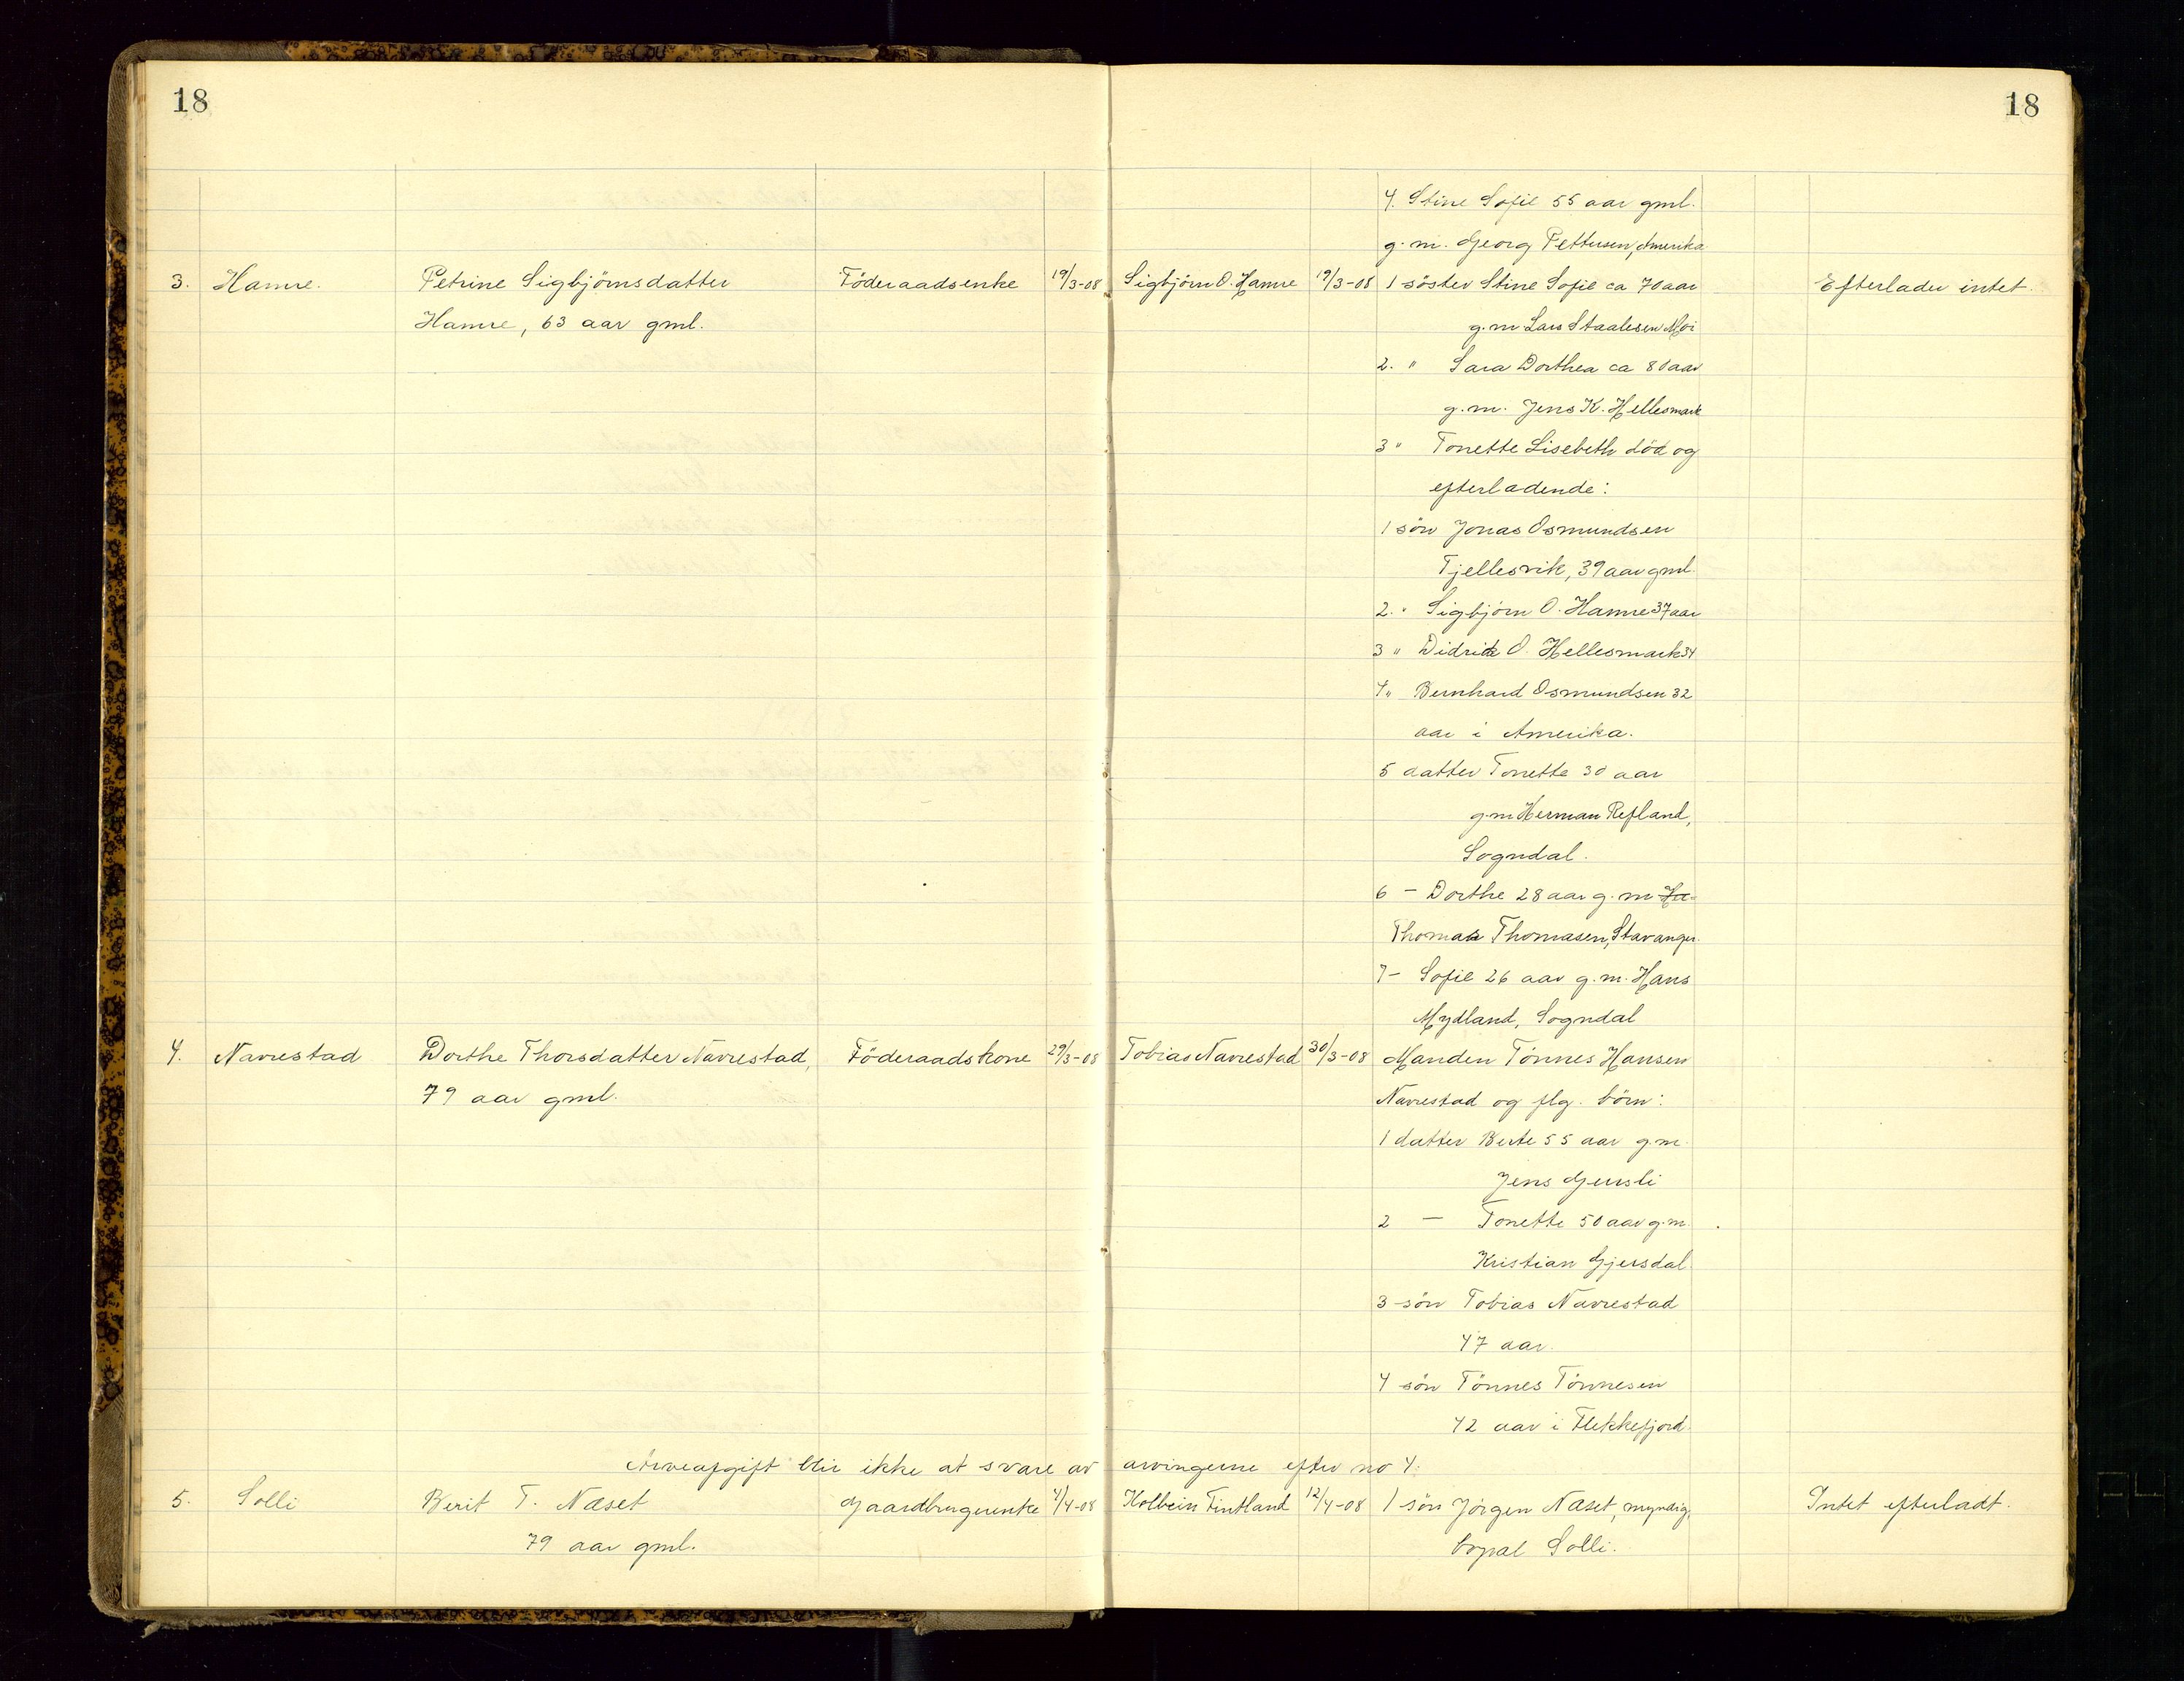 18
18
4. Stine Sofie 55 aar gml.
g. m. Georg Pettersen, Amerika
3. Hamre. Petrine Sigbjörnsdatter Föderaadsenke 19/3-08 Sigbjörn O. Hamre 19/3-08 1 söster Stine Sofie ca 70 aar Efterlader intet.
Hamre, 63 aar gml. g. m. Lars Staalesen Moi
2. " Sara Dorthea ca 80 aar
g. m. Jens K. Hellesmark
3 " Tonette Lisebeth död og
efterladende:
1 sön Jonas Osmundsen
Tjellesvik, 39 aar gml.
2. " Sigbjörn O. Hamre 37 aar
3 " Didrik O. Hellesmark 34
4 " Bernhard Osmundsen 32
aar i Amerika.
5 datter Tonette 30 aar
g. m Herman Refland,
Sogndal.
6 — Dorthe 28 aar g. m
Thomas Thomasen, Stavanger.
7 — Sofie 26 aar g. m. Hans
Mydland, Sogndal
4. Navrestad Dorthe Thorsdatter Navrestad, Föderaadskone 29/3-08 Tobias Navrestad 30/3-08 Manden Tönnes Hansen
79 aar gml. Navrestad og flg. börn:
1 datter Berte 55 aar g. m.
Jens Gursli
2 — Tonette 50 aar g. m.
Kristian Gjersdal
3 sön Tobias Navrestad
47 aar.
4 sön Tönnes Tönnesen
42 aar i Flekkefjord.
Arveafgift blir ikke at svare av arvingerne efter no 4.
5. Solli Berit T. Næset Gaardbrugerenke 4/4-08 Kolbein Fintland 12/4-08 1 sön Jörgen Næset, myndig, Intet efterladt.
79 aar gml. bopæl Solli.